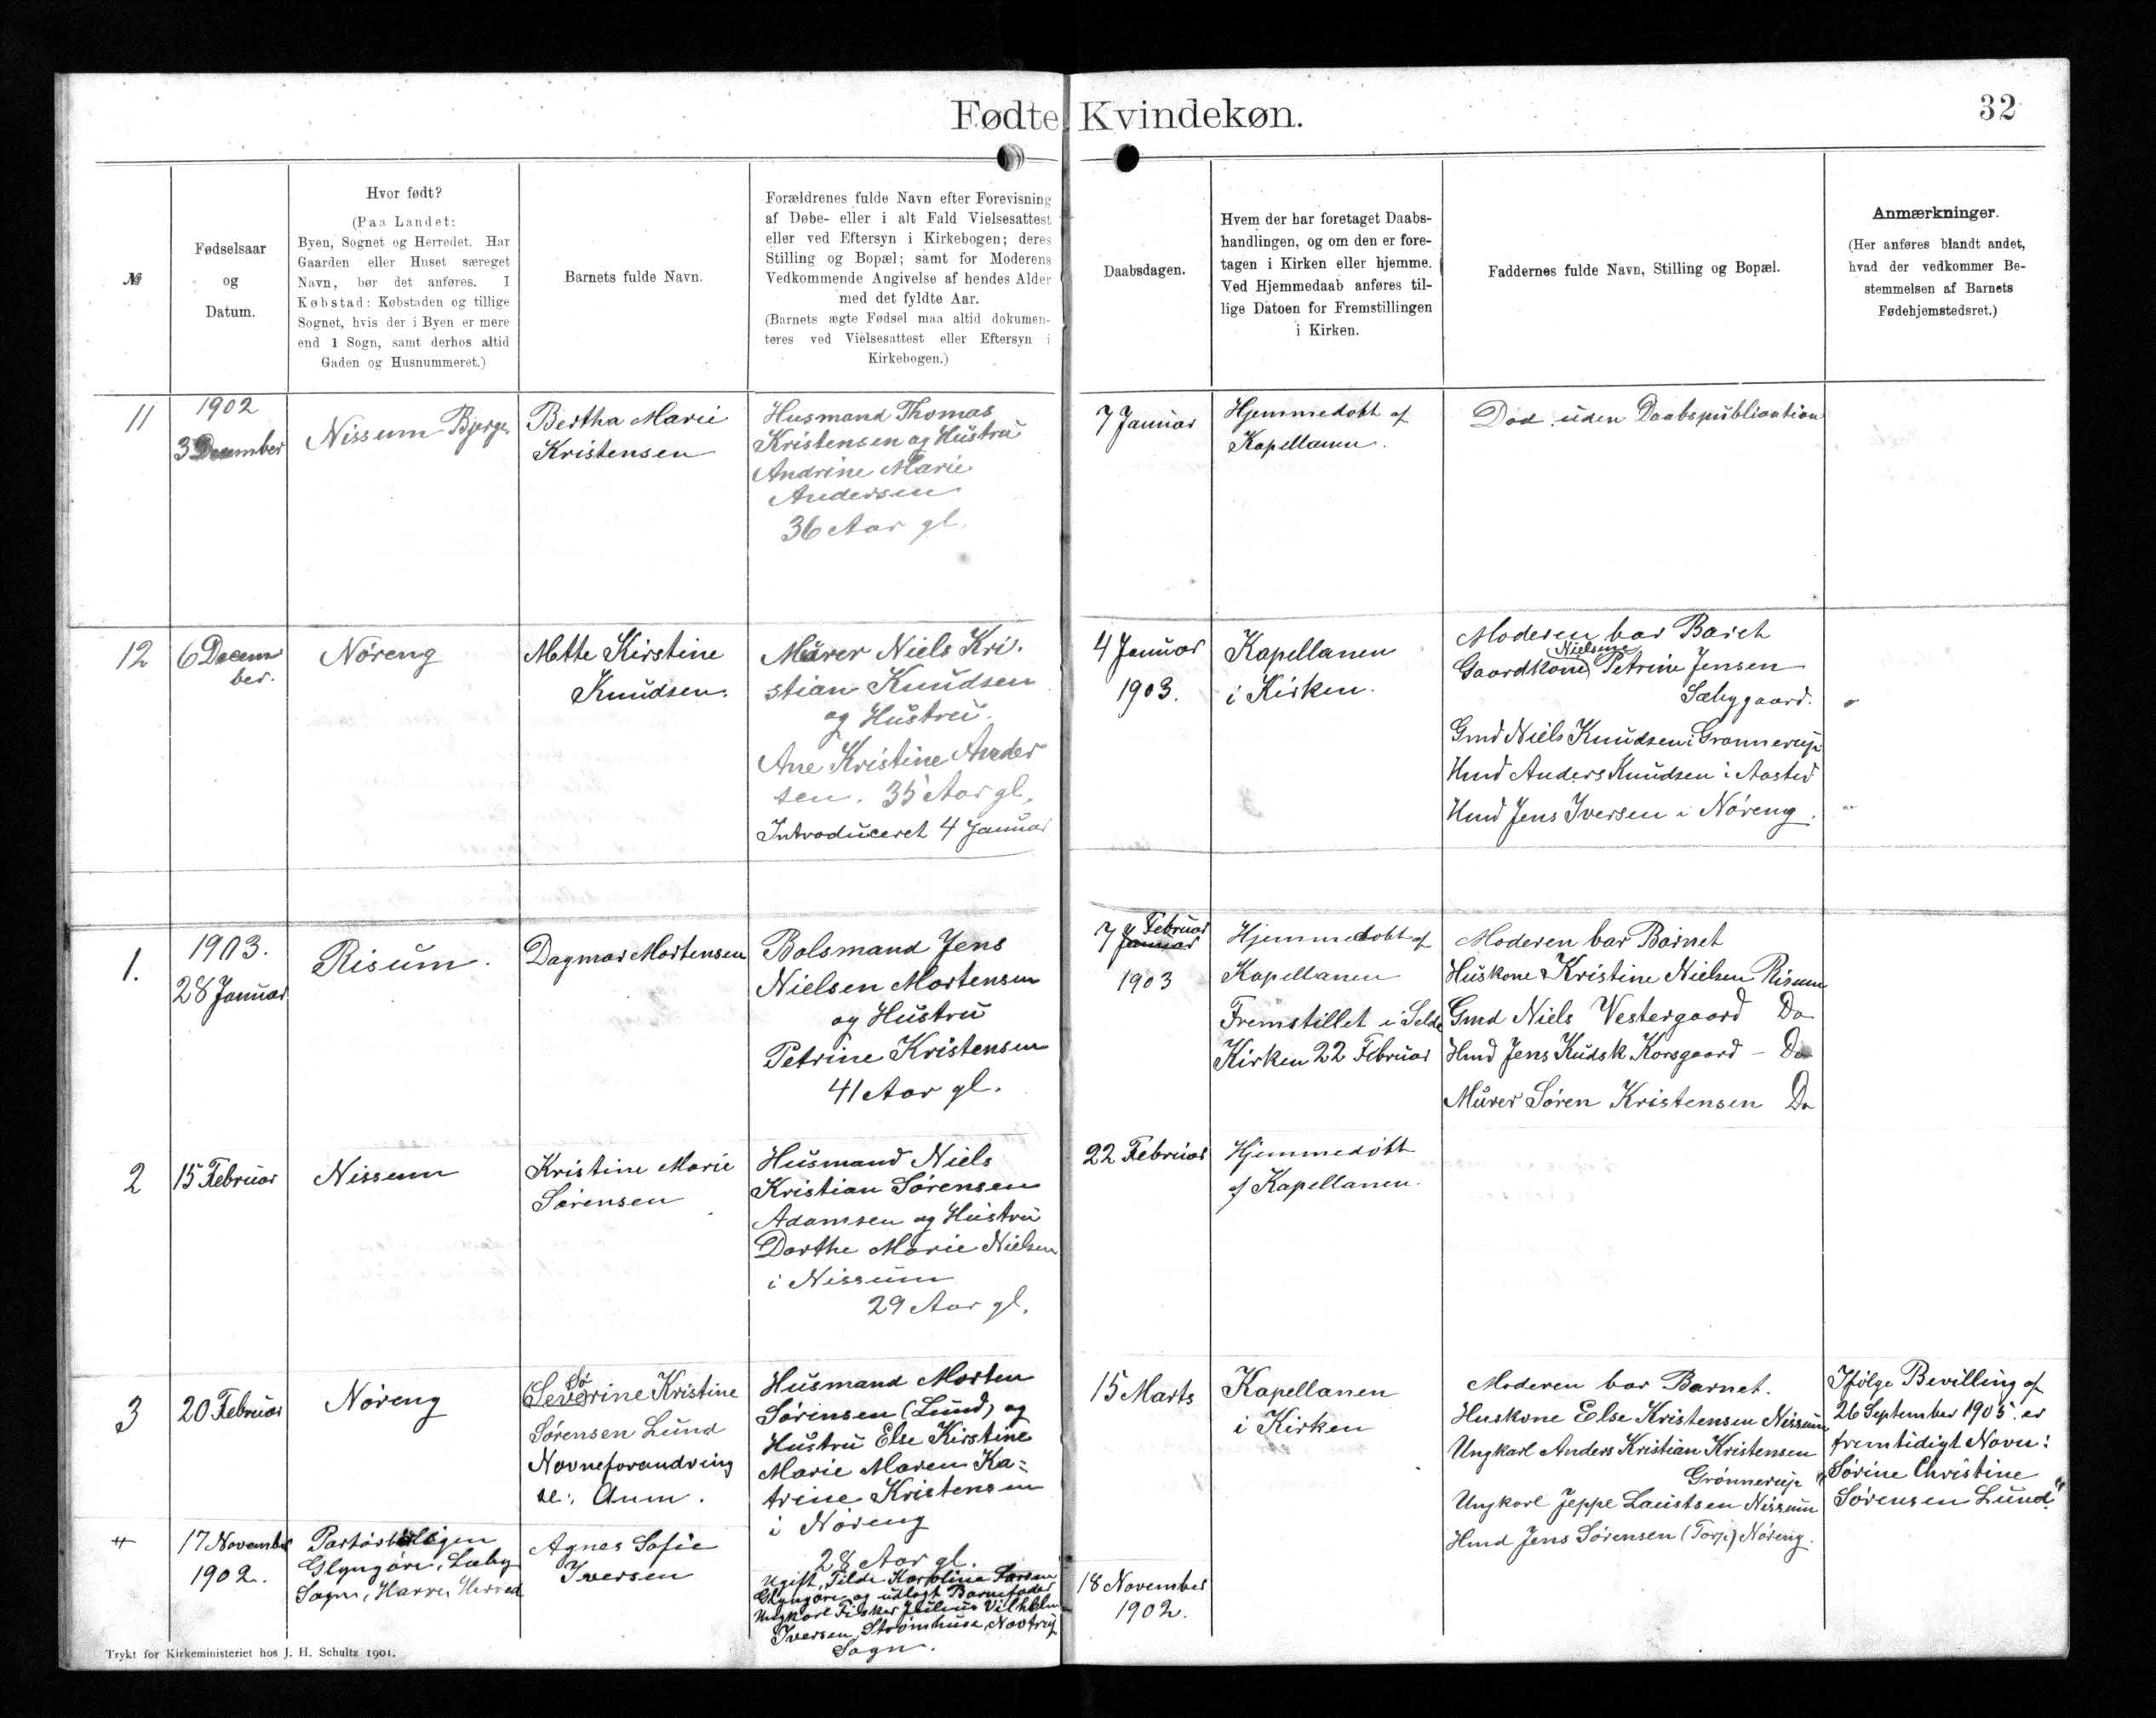 Fødte Kvindekøn.
32
№
Fødselsaar
og
Datum.
Hvor født?
(Paa Landet:
Byen, Sognet og Herredet. Har
Gaarden eller Huset særeget
Navn, bør det anføres. I
Købstad: Købstaden og tillige
Sognet, hvis der i Byen er mere
end 1 Sogn, samt derhos altid
Gaden og Husnummeret.)
Barnets fulde Navn.
Forældrenes fulde Navn efter Forevisning
af Døbe- eller i alt Fald Vielsesattest
eller ved Eftersyn i Kirkebogen; deres
Stilling og Bopæl; samt for Moderens
Vedkommende Angivelse af hendes Alder
med det fyldte Aar.
(Barnets ægte Fødsel maa altid dokumen-
teres ved Vielsesattest eller Eftersyn i
Kirkebogen.)
Daabsdagen.
Hvem der har foretaget Daabs-
handlingen, og om den er fore-
tagen i Kirken eller hjemme.
Ved Hjemmedaab anføres til-
lige Datoen for Fremstillingen
i Kirken.
Faddernes fulde Navn, Stilling og Bopæl.
Anmærkninger.
(Her anføres blandt andet,
hvad der vedkommer Be-
stemmelsen af Barnets
Fødehjemstedsret.)
11
1902
3 December
Nissum Bjerge
Bertha Marie
Kristensen
Husmand Thomas
Kristensen og Hustru
Andrine Marie
Andersen
36 Aar gl.
7 Januar
Hjemmedøbt af
Kapellanen.
Død uden Daabspublication
12
6 Decem
ber.
Nøreng
Mette Kirstine
Knudsen.
Murer Niels Kri-
stian Knudsen
og Hustru
Ane Kristine Ander
sen. 35 Aar gl.
Introduceret 4 Januar
4 Januar
1903.
Kapellanen
i Kirken.
Moderen bar Barnet
Nielsine
Gaardkone Petrine Jensen
Sæbygaard.
Gmd Niels Knudsen i Grønnerup
Hmd Anders Knudsen i Aasted
Hmd Jens Iversen i Nøreng.
1.
1903.
28 Januar
Risum.
Dagmar Mortensen
Bolsmand Jens
Nielsen Mortensen
og Hustru
Petrine Kristensen
41 Aar gl.
Februar
7 Januar
1903
Hjemmedøbt af
Kapellanen
Fremstillet i Selde
Kirken 22 Februar
Moderen bar Barnet
Huskone Kristine Nielsen Risum
Gmd Niels Vestergaard Do
Hmd Jens Kudsk Korsgaard - Do
Murer Søren Kristensen Do
2
15 Februar
Nissum
Kristine Marie
Sørensen
Husmand Niels
Kristian Sørensen
Adamsen og Hustru
Dorthe Marie Nielsen
i Nissum
29 Aar gl.
22 Februar
Hjemmedøbt
af Kapellanen.
3
20 Februar
Nøreng
Sø
Severine Kristine
Sørensen Lund
Navneforandring
se: Anm.
Husmand Morten
Sørensen (Lund) og
Hustru Else Kirstine
Marie Maren Ka-
trine Kristensen
i Nøreng
28 Aar gl.
15 Marts
Kapellanen
i Kirken
Moderen bar Barnet.
Huskone Else Kristensen Nissum
Ungkarl Anders Kristian Kristensen
Grønnerup
Ungkarl Jeppe Laustsen Nissum
Hmd Jens Sørensen (Torp) Nøreng.
Ifølge Bevilling af
26 September 1905 er
fremtidigt Navn:
"Sørine Christine
Sørensen Lund"
17 November
1902.
Glyngøre, Sæby
Sogn, Harre Herred
Agnes Sofie
Iversen
Ugift, Tilde Karoline Larsen
Glyngøre og udlagt Barnefader
Ungkarl Fisker Julius Vilhelm
Iversen, Strømhuse, Nautrup
Sogn.
18 November
1902.
Trykt for Kirkeministeriet hos J. H. Schultz 1901.